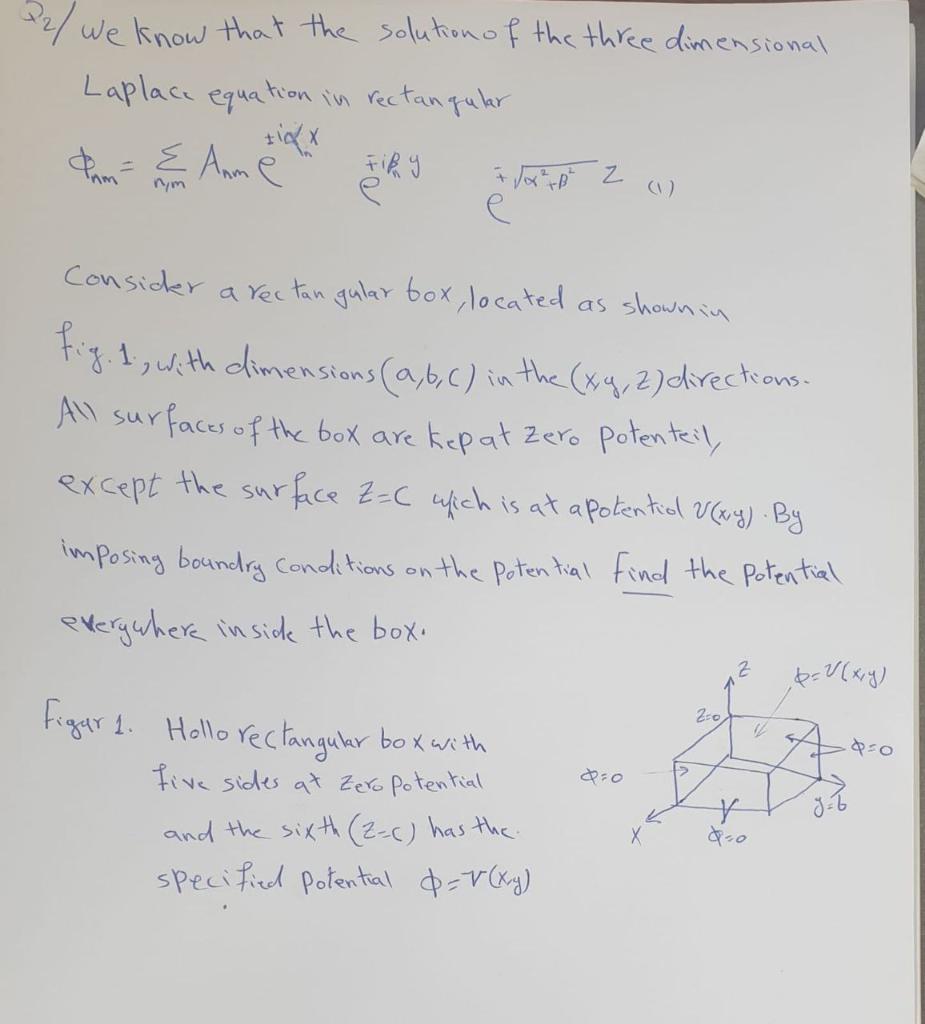 Q2/ we know that the solution of the three dimensional
Laplace equation in rectangular
Φnm = Σ n,m Anm e^±iαn x e^∓iβn y e^∓√α²+β² z (1)
Consider a rectangular box, located as shown in
fig. 1, with dimensions (a,b,c) in the (x,y,z) directions.
All surfaces of the box are kep at zero potenteil,
except the surface z=c which is at a potential V(x,y). By
imposing boundry conditions on the potential find the potential
everywhere inside the box.
z
Φ=V(x,y)
z=0
Φ=0
Φ=0
y=b
x
Φ=0
Figur 1. Hollo rectangular box with
five sides at zero potential
and the sixth (z=c) has the
specified potential Φ=V(x,y)